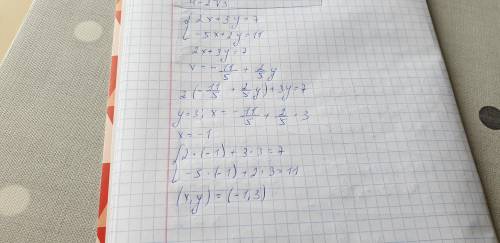 { 2x + 3y = 7
{ -5x + 2y = 11
2x + 3y = 7
x = - 11/5 + 2/5 y
2 (- 11/5 + 2/5 y) + 3y = 7
y = 3; x = - 11/5 + 2/5 · 3
x = -1
{ 2 · (-1) + 3 · 3 = 7
{ -5 · (-1) + 2 · 3 = 11
(x, y) = (-1, 3)